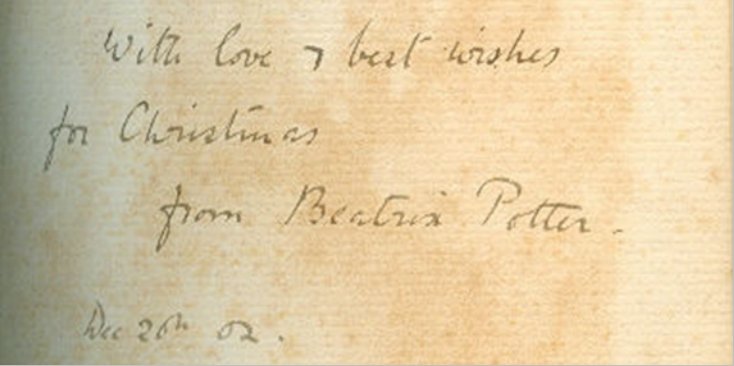 With love & best wishes
for Christmas
from Beatrix Potter.
Dec 20th 02.